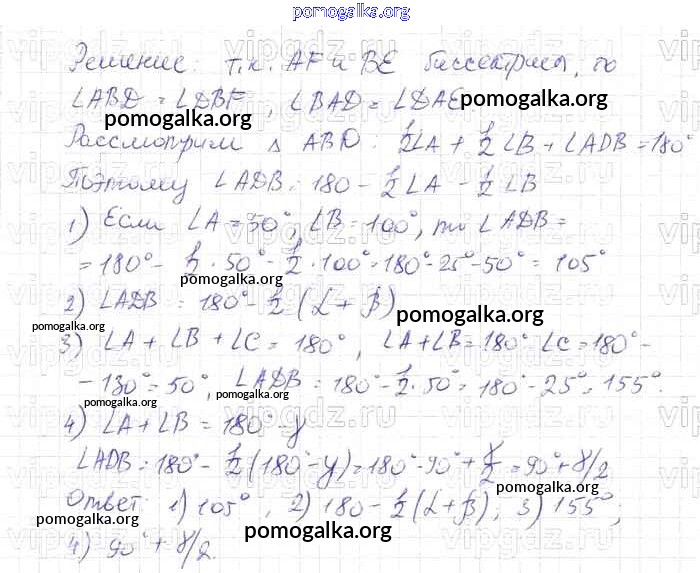 pomogalka.org
Решение: т.к. AF и BE биссектриса, то
∠ABD = ∠DBF, ∠BAD = ∠DAE pomogalka.org
pomogalka.org
Рассмотрим Δ ABD: 1/2∠A + 1/2 ∠B + ∠ADB = 180°
Поэтому ∠ADB = 180 - 1/2 ∠A - 1/2 ∠B
1) Если ∠A = 50°, ∠B = 100°, то ∠ADB =
= 180° - 1/2 · 50° - 1/2 · 100° = 180° - 25° - 50° = 105°
pomogalka.org
2) ∠ADB = 180° - 1/2 (α + β) pomogalka.org
pomogalka.org
3) ∠A + ∠B + ∠C = 180°, ∠A + ∠B = 180° ∠C = 180° -
- 130° = 50°, ∠ADB = 180° - 1/2 · 50° = 180° - 25° = 155°.
pomogalka.org pomogalka.org
4) ∠A + ∠B = 180° - γ
∠ADB = 180° - 1/2 (180° - γ) = 180° - 90° + γ/2 = 90° + γ/2
Ответ: 1) 105°, 2) 180 - 1/2 (α + β); 3) 155°;
pomogalka.org pomogalka.org
4) 90° + γ/2. pomogalka.org